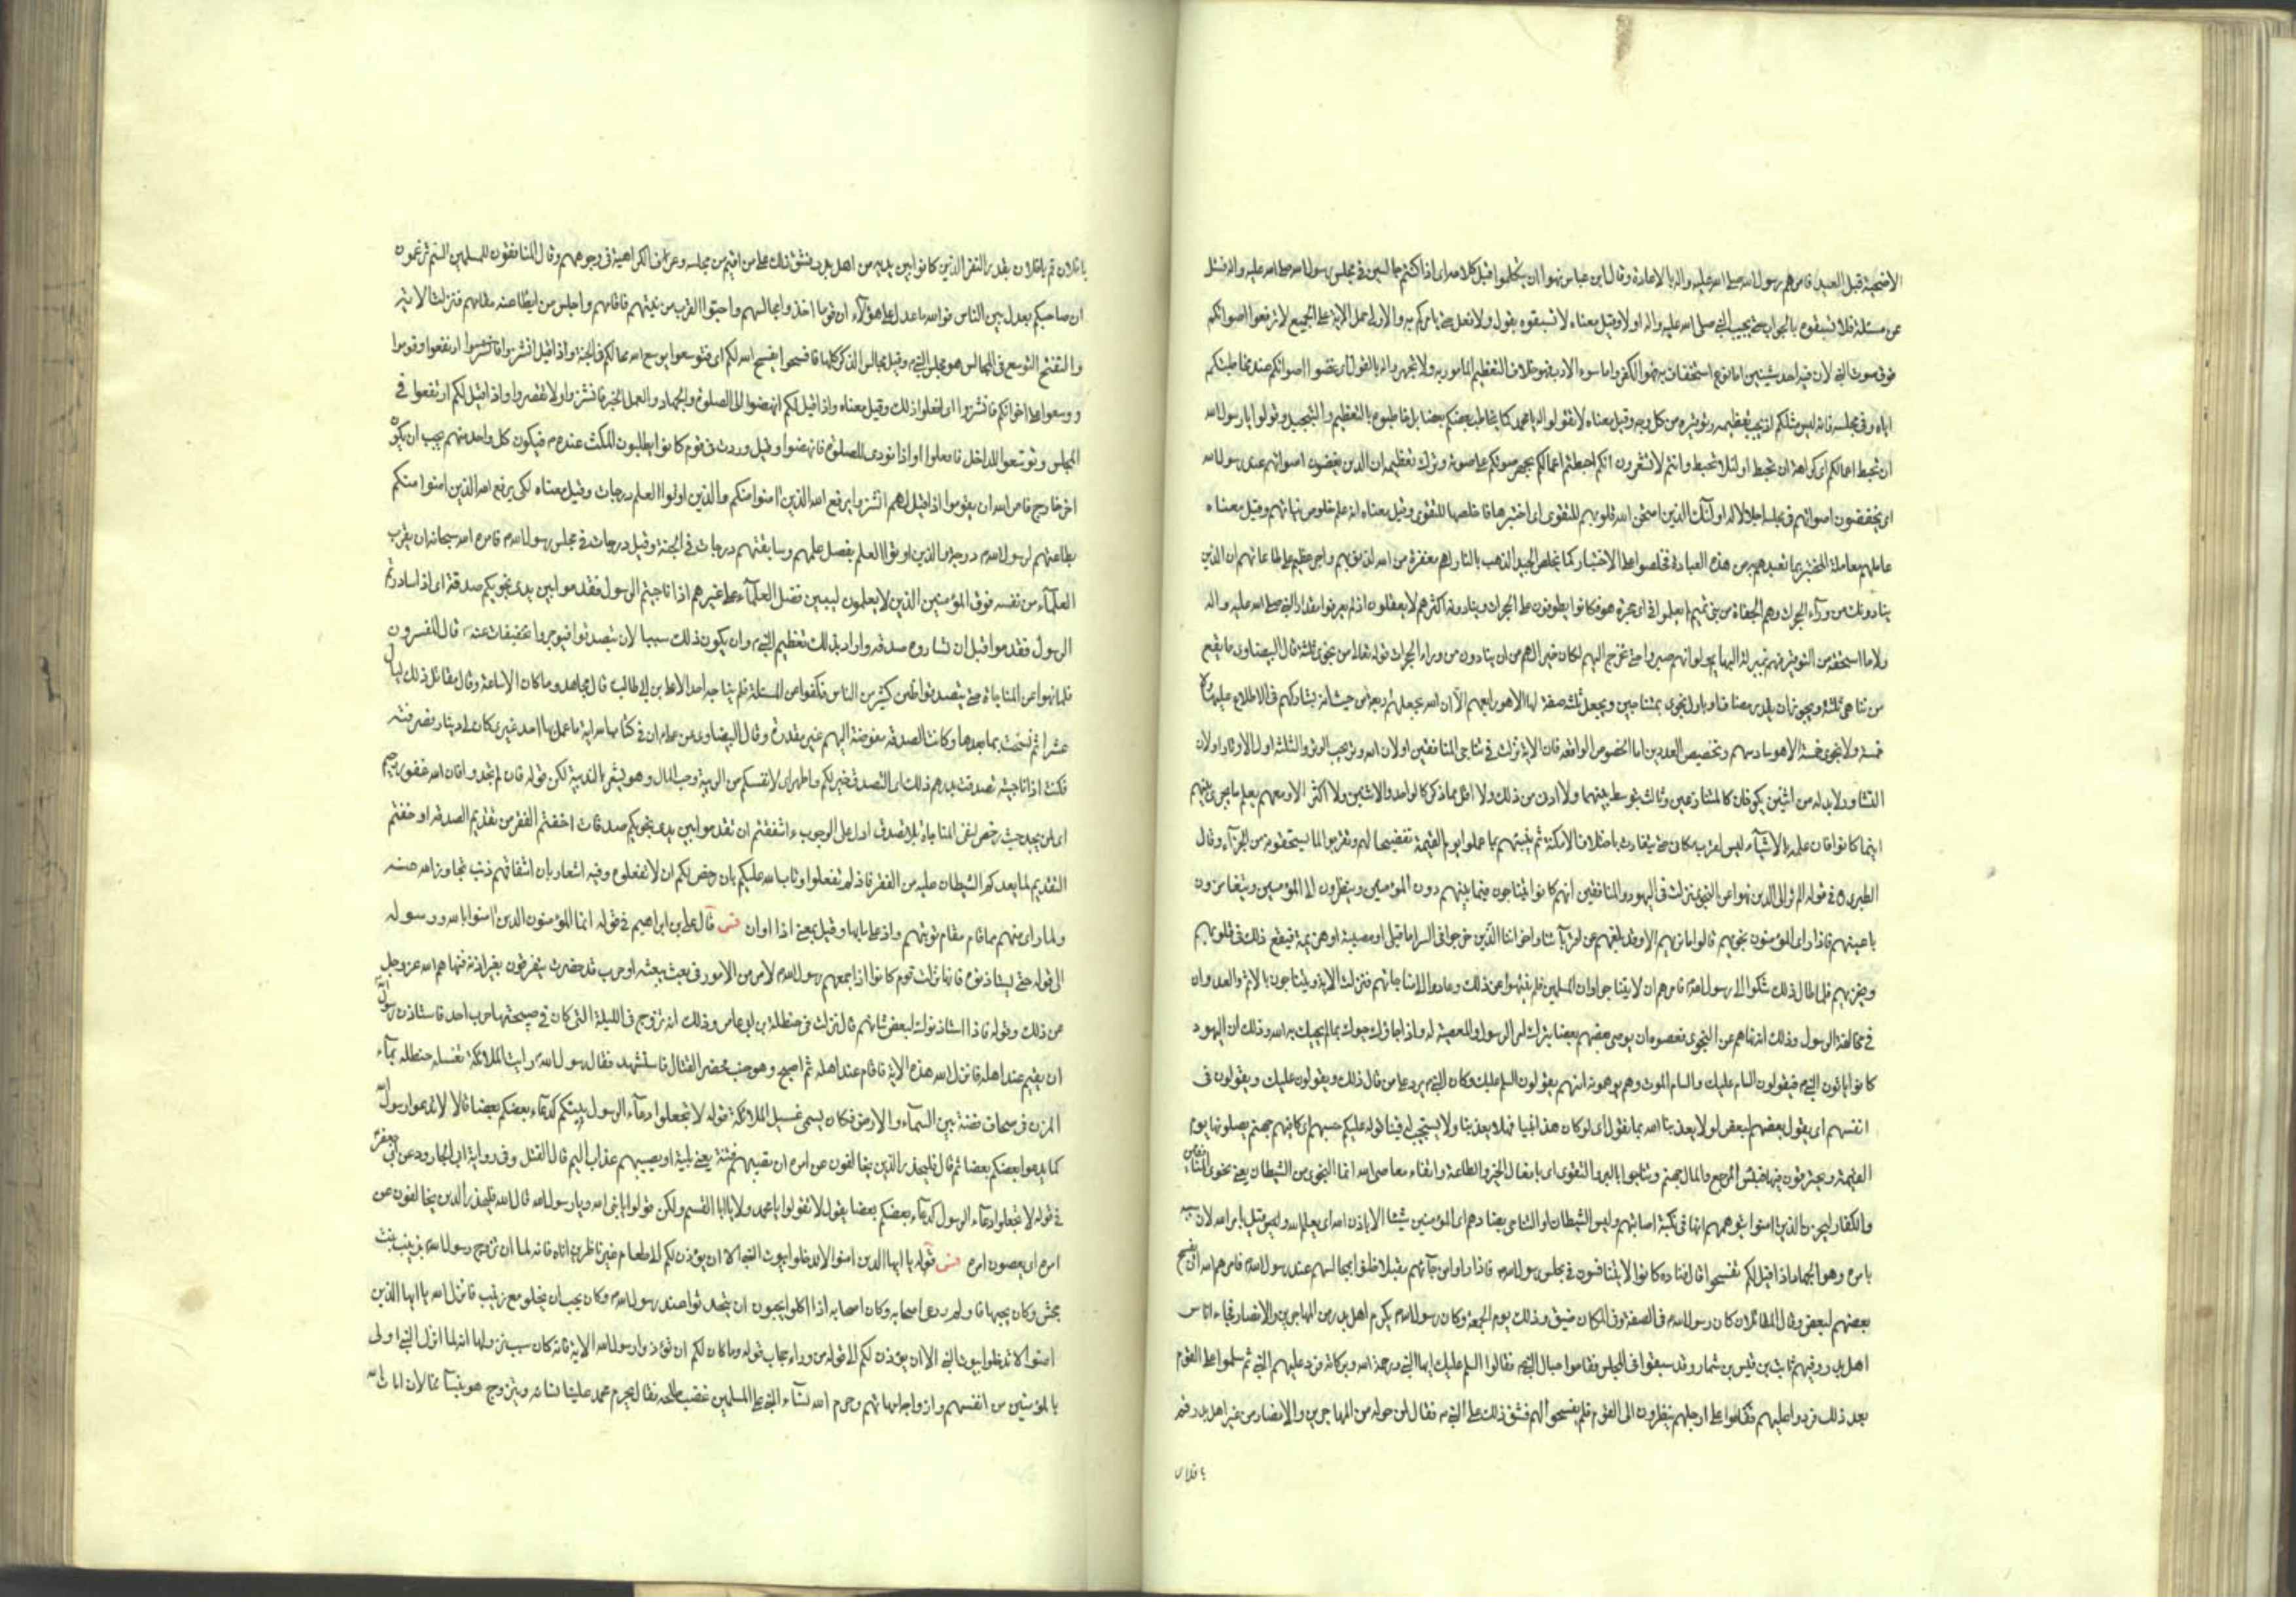 الاضحية قبل العيد فامرهم رسول الله صلى الله عليه واله بالاعادة وقال ابن عباس نهوا ان يتكلموا قبل كلامه اى اذا كنتم جالسين فى مجلس رسول الله صلى الله عليه واله فسئل
عن مسئلة فلا تسبقوه بالجواب حتى يجيب النبى صلى الله عليه واله اولا وقيل معناه لا تسبقوه بقول ولا فعل حتى يامركم به والاولى حمل الاية على الجميع لا ترفعوا اصواتكم
فوق صوت النبى لان فيه احد شيئين اما نوع استخفاف به فهو الكفر واما سوء الادب فهو خلاف التعظيم المامور به ولا تجهروا له بالقول اى غضوا اصواتكم عند مخاطبتكم
اياه وفى مجلسه فانه ليس مثلكم اذ يجب تعظيمه وتوقيره من كل وجه وقيل معناه لا تقولوا له يا محمد كما يخاطب بعضكم بعضا بل خاطبوه بالتعظيم والتبجيل وقولوا يا رسول الله
ان تحبط اعمالكم اى كراهة ان تحبط او لئلا تحبط وانتم لا تشعرون انكم احبطتم اعمالكم بجهر صوتكم على صوته وترك تعظيمه ان الذين يغضون اصواتهم عند رسول الله
اى يخفضون اصواتهم فى مجلسه اجلالا له اولئك الذين امتحن الله قلوبهم للتقوى اى اختبرها فاخلصها للتقوى وقيل معناه انه علم خلوص نياتهم وقيل معناه
عاملهم معاملة المختبر بما تعبدهم به من هذه العبادة فخلصوا على الاختبار كما يخلص الجيد الذهب بالنار لهم مغفرة من الله لذنوبهم واجر عظيم على طاعاتهم ان الذين
ينادونك من وراء الحجرات وهم الجفاة من بنى تميم لم يعلموا فى اى حجرة هو فكانوا يطوفون على الحجرات وينادونه اكثرهم لا يعقلون اذ لم يعرفوا مقدار النبى صلى الله عليه واله
ولا ما استحقه من التوقير فهم بمنزلة البهايم ولو انهم صبروا حتى تخرج اليهم لكان خيرا لهم من ان ينادوك من وراء الحجرات قوله تعالى من نجوى ثلثة قال البيضاوى ما يقع
من تناجى ثلثة ويجوز ان يقدر مضاف او ياول نجوى بمتناجين ويجعل ثلثة صفة لها الا هو رابعهم الا ان الله يجعلهم اربعة من حيث انه يشاركهم فى الاطلاع عليها ولا
خمسة ولا نجوى خمسة الا هو سادسهم وتخصيص العددين اما لخصوص الواقعة فان الاية نزلت فى تناجى المنافقين او لان الله وتر يحب الوتر والثلثة اول الاوتار او لان
التشاور لا بد له من اثنين يكونان كالمتنازعين وثالث يتوسط بينهما ولا ادنى من ذلك ولا اقل مما ذكر كالواحد والاثنين ولا اكثر الا هو معهم يعلم ما يجرى بينهم
اينما كانوا فان علمه بالاشياء ليس لقرب مكانى حتى يتفاوت باختلاف الامكنة ثم ينبئهم بما عملوا يوم القيمة تفضيحا لهم وتقريرا لما يستحقونه من الجزاء وقال
الطبرى فى قوله الم تر الى الذين نهوا عن النجوى نزلت فى اليهود والمنافقين انهم كانوا يتناجون فيما بينهم دون المؤمنين وينظرون الى المؤمنين ويتغامزون
باعينهم فاذا راى المؤمنون نجويهم قالوا ما نريهم الا وقد بلغهم عن اقربائنا واخواننا الذين خرجوا فى السرايا قتل او مصيبة او هزيمة فيقع ذلك فى قلوبهم
ويحزنهم فلما طال ذلك شكوا الى رسول الله فامرهم ان لا يتناجوا دون المسلمين فلم ينتهوا عن ذلك وعادوا الى مناجاتهم فنزلت الاية ويتناجون بالاثم والعدوان
فى مخالفة الرسول وذلك انه نهاهم عن النجوى فعصوه او يوصى بعضهم بعضا بترك امر الرسول والمعصية له واذا جاؤك حيوك بما لم يحيك به الله وذلك ان اليهود
كانوا ياتون النبى فيقولون السام عليك والسام الموت وهم يوهمونه انهم يقولون السلام عليك وكان النبى يرد على من قال ذلك ويقول وعليك ويقولون فى
انفسهم اى يقول بعضهم لبعض لولا يعذبنا الله بما نقول اى لو كان هذا نبيا فهلا يعذبنا ولا يستجيب له فينا قوله عليكم حسبهم اى كافيهم جهنم يصلونها يوم
القيمة ويحترقون فيها فبئس المرجع والمال جهنم وتناجوا بالبر والتقوى اى بافعال الخير والطاعة واتقاء معاصى الله انما النجوى من الشيطان يعنى نجوى المنافقين
والكفار ليحزن الذين امنوا بتوهمهم انها فى نكبة اصابتهم وليس الشيطان او التناجى بضارهم اى المؤمنين شيئا الا باذن الله اى بعلم الله وليس قيل بامر الله لان سببه
بامره وهو الجهاد اذا قيل لكم تفسحوا قال قتاده كانوا يتنافسون فى مجلس رسول الله فاذا راوا من جاءهم مقبلا ضنوا بمجالسهم عند رسول الله فامرهم الله ان يفسح
بعضهم لبعض وقال المقاتلان كان رسول الله فى الصفة وفى المكان ضيق وذلك يوم الجمعة وكان رسول الله يكرم اهل بدر من المهاجرين والانصار فجاء اناس
اهل بدر وفيهم ثابت بن قيس بن شماس وقد سبقوا فى المجلس فقاموا حيال النبى فقالوا السلام عليك ايها النبى ورحمة الله وبركاته فرد عليهم النبى ثم سلموا على القوم
بعد ذلك فردوا عليهم فقاموا على ارجلهم ينظرون الى القوم فلم يفسحوا لهم فشق ذلك على النبى فقال لمن حوله من المهاجرين والانصار من غير اهل بدر قم
يا فلان
يا فلان قم يا فلان بقدر النفر الذين كانوا بين يديه من اهل بدر فشق ذلك على من اقيم من مجلسه وعرف الكراهية فى وجوههم وقال المنافقون للمسلمين الستم تزعمون
ان صاحبكم يعدل بين الناس فوالله ما عدل على هؤلاء ان قوما اخذوا مجالسهم واحبوا القرب من نبيهم فاقامهم واجلس من ابطا عنه مقامهم فنزلت الاية
والتفسح التوسع فى المجالس هو مجلس النبى وقيل مجالس الذكر كلها فافسحوا يفسح الله لكم اى فتوسعوا يوسع الله مجالسكم فى الجنة واذا قيل انشزوا فانشزوا ارتفعوا وقوموا
ووسعوا على اخوانكم فانشزوا اى افعلوا ذلك وقيل معناه واذا قيل لكم انهضوا الى الصلوة والجهاد والعمل الخير فانشزوا ولا تقصروا واذا قيل لكم ارتفعوا فى
المجلس وتوسعوا للداخل فافعلوا او اذا نودى للصلوة فانهضوا وقيل وردت فى قوم كانوا يطيلون المكث عنده فيكون كل واحد منهم يحب ان يكون
اخر خارج فامر الله ان يقوموا اذا قيل لهم انشزوا يرفع الله الذين امنوا منكم والذين اوتوا العلم درجات وقيل معناه لكى يرفع الله الذين امنوا منكم
بطاعتهم لرسول الله درجة والذين اوتوا العلم بفضل علمهم وسابقتهم درجات فى الجنة وقيل درجات فى مجلس رسول الله فامره الله سبحانه ان يقرب
العلماء من نفسه فوق المؤمنين الذين لا يعلمون ليبين فضل العلماء على غيرهم اذا ناجيتم الرسول فقدموا بين يدى نجويكم صدقة اى اذا ساررتم
الرسول فقدموا قبل ان تساروه صدقة واراد بذلك تعظيم النبى وان يكون ذلك سببا لان يتصدقوا فيوجروا تخفيفا عنه قال المفسرون
فلما نهوا عن المناجاة حتى يتصدقوا ضن كثير من الناس فكفوا عن المسئلة فلم يناجه احد الا على بن ابى طالب قال مجاهد وما كان الا ساعة وقال مقاتل ذلك ليال
عشرا ثم نسخت بما بعدها وكانت الصدقة مفوضة اليهم غير مقدرة وقال البيضاوى عن على ان فى كتاب الله اية ما عمل بها احد غيرى كان لى دينار فصرفته
فكنت اذا ناجيته تصدقت بدرهم ذلك اى التصدق خير لكم واطهر اى لانفسكم من الريبة وحب المال وهو يشعر بالندبية لكن قوله فان لم تجدوا فان الله غفور رحيم
اى لمن يجد حيث رخص لغير المناجاة بلا تصدق ادل على الوجوب ءاشفقتم ان تقدموا بين يدى نجويكم صدقات اخفتم الفقر من تقديم الصدقة او خفتم
التقديم لما يعدكم الشيطان عليه من الفقر فاذ لم تفعلوا وتاب الله عليكم بان رخص لكم ان لا تفعلوه وفيه اشعار بان اشفاقهم ذنب تجاوز الله عنه
ولما راى منهم مما قام مقام توبتهم واذ على بابها وقيل بمعنى اذا او ان فس قال على بن ابراهيم فى قوله انما المؤمنون الذين امنوا بالله ورسوله
الى قوله حتى يستاذنوه فانها نزلت فى قوم كانوا اذا جمعهم رسول الله لامر من الامور فى بعث يبعثه او حرب قد حضرت يتفرقون بغير اذنه فنهاهم الله عز وجل
عن ذلك وقوله فاذا استاذنوك لبعض شانهم قال نزلت فى حنظلة بن ابى عامر وذلك انه تزوج فى الليلة التى كان فى صبيحتها حرب احد فاستاذن رسول الله
ان يقيم عند اهله فانزل الله هذه الاية فاقام عند اهله ثم اصبح وهو جنب فحضر القتال فاستشهد فقال رسول الله رايت الملائكة تغسله حنظله بماء
المزن فى صحاف فضة بين السماء والارض فكان يسمى غسيل الملائكة قوله لا تجعلوا دعاء الرسول بينكم كدعاء بعضكم بعضا قال لا تدعوا رسول الله
كما يدعوا بعضكم بعضا ثم قال فليحذر الذين يخالفون عن امره ان تصيبهم فتنة يعنى بلية او يصيبهم عذاب اليم قال القتل وفى رواية ابى الجارود عن ابى جعفر
فى قوله لا تجعلوا دعاء الرسول كدعاء بعضكم بعضا يقول لا تقولوا يا محمد ولا يا ابا القسم ولكن قولوا يا نبى الله ويا رسول الله قال الله فليحذر الذين يخالفون عن
امره اى يعصون امره فس قوله يا ايها الذين امنوا لا تدخلوا بيوت النبى الا ان يؤذن لكم الى طعام غير ناظرين اناه فانه لما ان تزوج رسول الله بزينب بنت
جحش وكان يحبها فاولم ودعى اصحابه وكان اصحابه اذا اكلوا يحبون ان يتحدثوا عند رسول الله وكان يحب ان يخلو مع زينب فانزل الله يا ايها الذين
امنوا لا تدخلوا بيوت النبى الا ان يؤذن لكم الى قوله من وراء حجاب قوله وما كان لكم ان تؤذوا رسول الله الاية فانه كان سبب نزولها انه لما انزل النبى اولى
بالمؤمنين من انفسهم وازواجه امهاتهم وحرم الله نساء النبى على المسلمين غضب طلحة فقال يحرم محمد علينا نسائه ويتزوج هو بنسائنا لئن امات الله